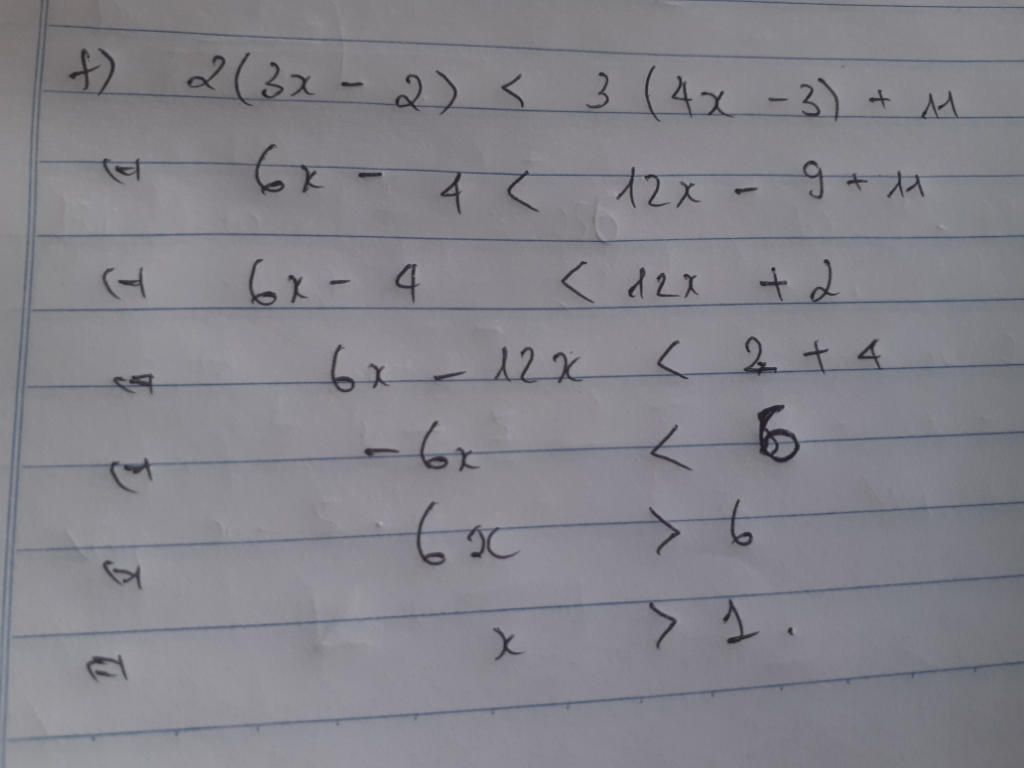 f) 2(3x - 2) < 3 (4x - 3) + 11
⇔ 6x - 4 < 12x - 9 + 11
⇔ 6x - 4 < 12x + 2
⇔ 6x - 12x < 2 + 4
⇔ -6x < 6
⇔ 6x > 6
⇔ x > 1.